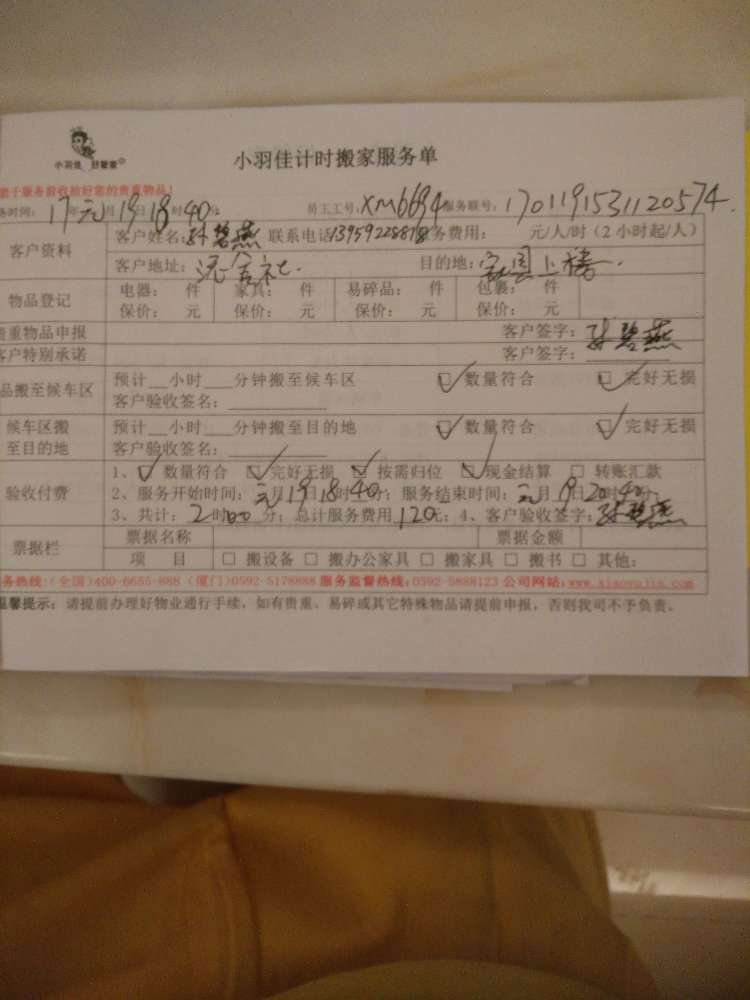 小羽佳 好管家
小羽佳计时搬家服务单
于服务前收拾好您的贵重物品!
务时间: 17年元月19日18时40分 员工工号:XM6694 服务联号: 1701191531120574
客户资料 客户姓名:孙碧燕 联系电话 务费用: 元/人/时(2小时起/人)
客户地址: 目的地:
物品登记 电器: 件 家具: 件 易碎品: 件 包裹: 件
保价: 元 保价: 元 保价: 元 保价: 元
贵重物品申报 客户签字:孙碧燕
客户特别承诺 客户签字:
品搬至候车区 预计__小时___分钟搬至候车区 ☑数量符合 ☑完好无损
客户验收签名:
候车区搬至目的地 预计__小时___分钟搬至目的地 ☑数量符合 ☑完好无损
客户验收签名:
验收付费 1、☑数量符合 ☑完好无损 ☑按需归位 ☑现金结算 □转账汇款
2、服务开始时间:元月19日18时40分; 服务结束时间:元月19日20时40分;
3、共计:2时00分;总计服务费用120元;4、客户验收签字:孙碧燕
票据栏 票据名称 票据金额
项 目 □搬设备 □搬办公家具 □搬家具 □搬书 □其他:
务热线:(全国)400-6655-888 (厦门)0592-5178888 服务监督热线:0592-5888123 公司网站:www.xiaoyujia.com
温馨提示:请提前办理好物业通行手续,如有贵重、易碎或其它特殊物品请提前申报,否则我司不予负责。